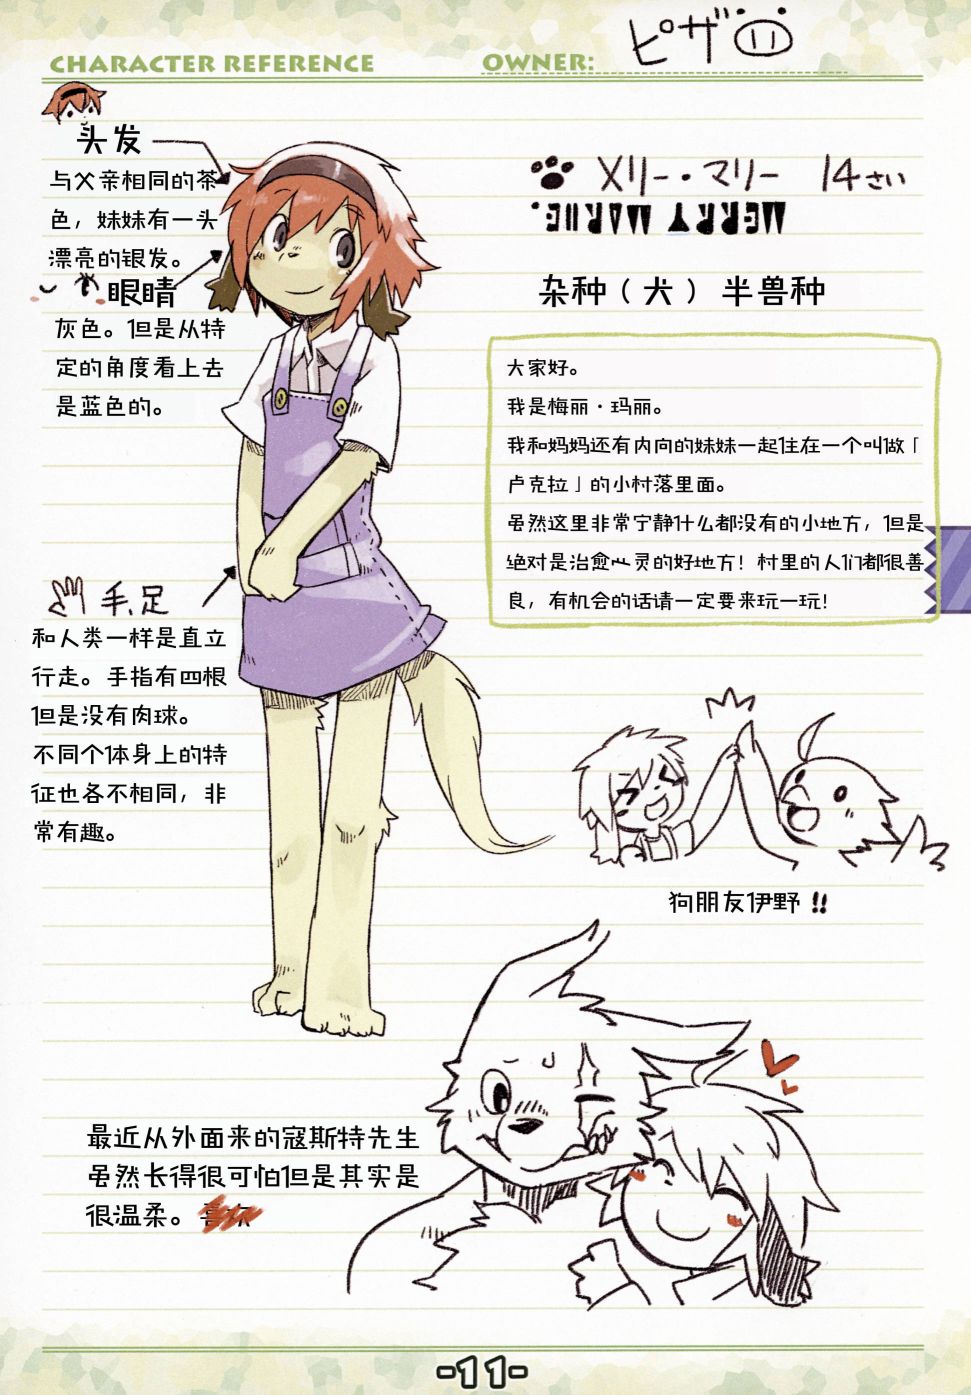 CHARACTER REFERENCE
OWNER: ピザ
头发
与父亲相同的茶
色，妹妹有一头
漂亮的银发。
眼睛
灰色。但是从特
定的角度看上去
是蓝色的。
メリー・マリー 14さい
MERRY MARIE.
杂种（犬） 半兽种
大家好。
我是梅丽·玛丽。
我和妈妈还有内向的妹妹一起住在一个叫做「
卢克拉」的小村落里面。
虽然这里非常宁静什么都没有的小地方，但是
绝对是治愈心灵的好地方！村里的人们都很善
良，有机会的话请一定要来玩一玩！
手、足
和人类一样是直立
行走。手指有四根
但是没有肉球。
不同个体身上的特
征也各不相同，非
常有趣。
狗朋友伊野 !!
最近从外面来的寇斯特先生
虽然长得很可怕但是其实是
很温柔。喜欢
-11-